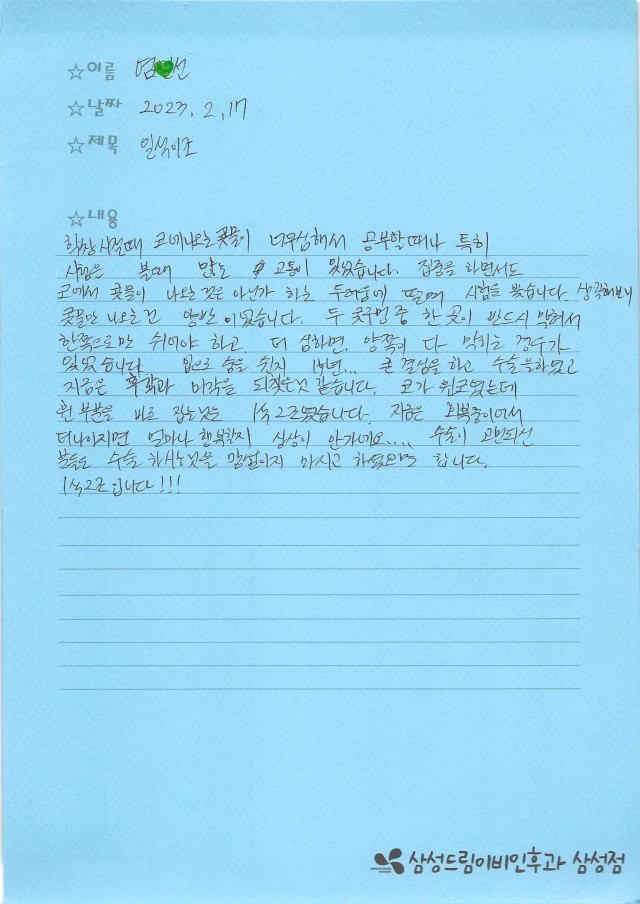 ☆이름 염 선
☆날짜 2023. 2. 17
☆제목 일석이조
☆내용
학창시절때 코에나오는 콧물이 너무심해서 공부할때나 특히
시험은 볼때 많은 고통이 있었습니다. 집중을 하면서도
코에서 콧물이 나오는 것은 아닌가 하는 두려움에 떨며 시험을 봤습니다. 생각해보니
콧물만 나오는건 양반이었습니다. 두 콧구멍중 한 곳이 반드시 막혀서
한쪽으로만 쉬어야 하고, 더 심하면, 양쪽이 다 막히는 경우가
있었습니다. 입으로 숨을 쉰지 년... 큰 결심을 하고 수술을하였고
지금은 후각과 미각을 되찾은것 같습니다. 코가 휜코였는데
휜 부분을 바로 잡는 1석2조였습니다. 지금은 회복중이어서
더나아지면 얼마나 행복할지 상상이 안가네요.... 수술이 고민되신
분들은 수술 하시는것을 망설이지 마시고 하셨으면 합니다.
1석2조입니다!!!
삼성드림이비인후과 삼성점